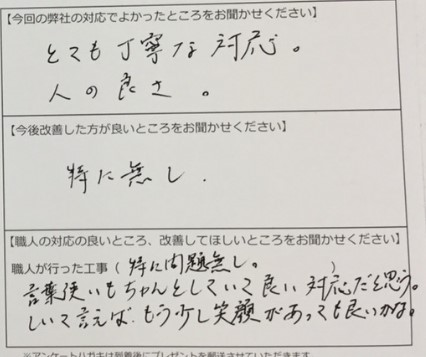 【今回の弊社の対応でよかったところをお聞かせください】
とても丁寧な対応。
人の良さ。
【今後改善した方が良いところをお聞かせください】
特に無し.
【職人の対応の良いところ、改善してほしいところをお聞かせください】
職人が行った工事（特に問題無し。）
言葉使いもちゃんとしていて良い対応だと思う。
しいて言えば、もう少し笑顔があっても良いかな。
※アンケートハガキは到着後にプレゼントを郵送させていただきます